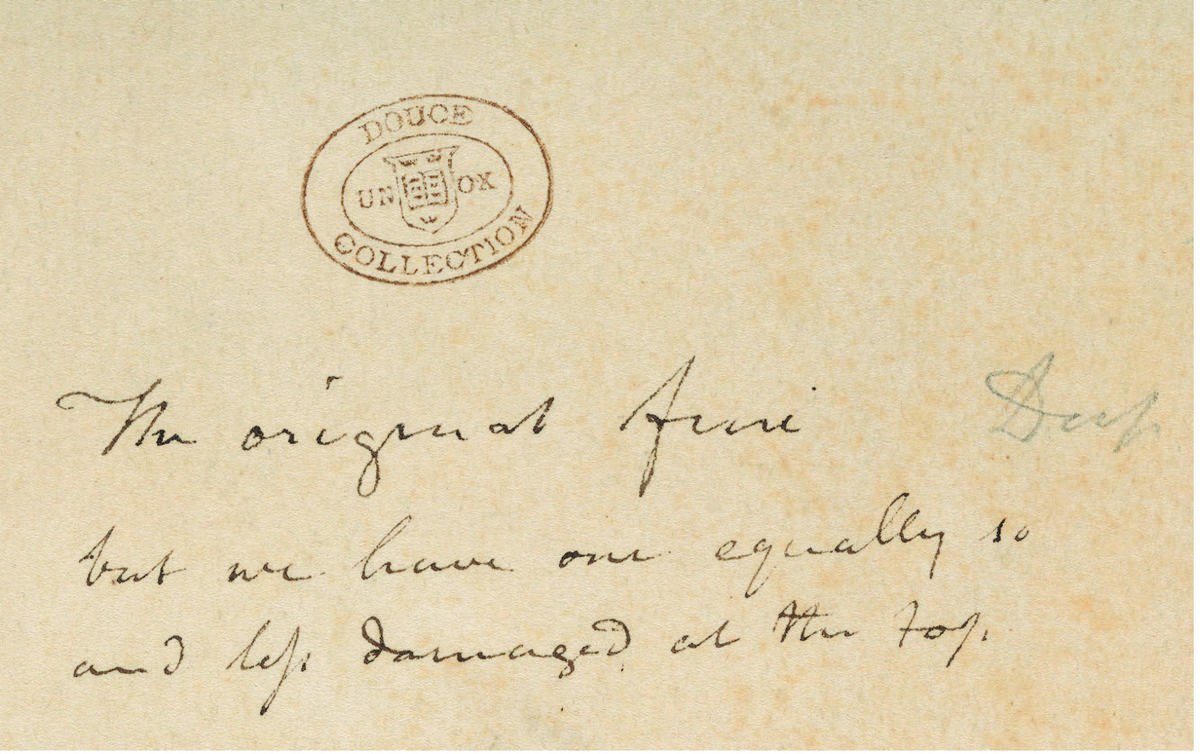 DOUCE
UN OX
COLLECTION
The original fine Dup
but we have one equally so
and less damaged at the top.